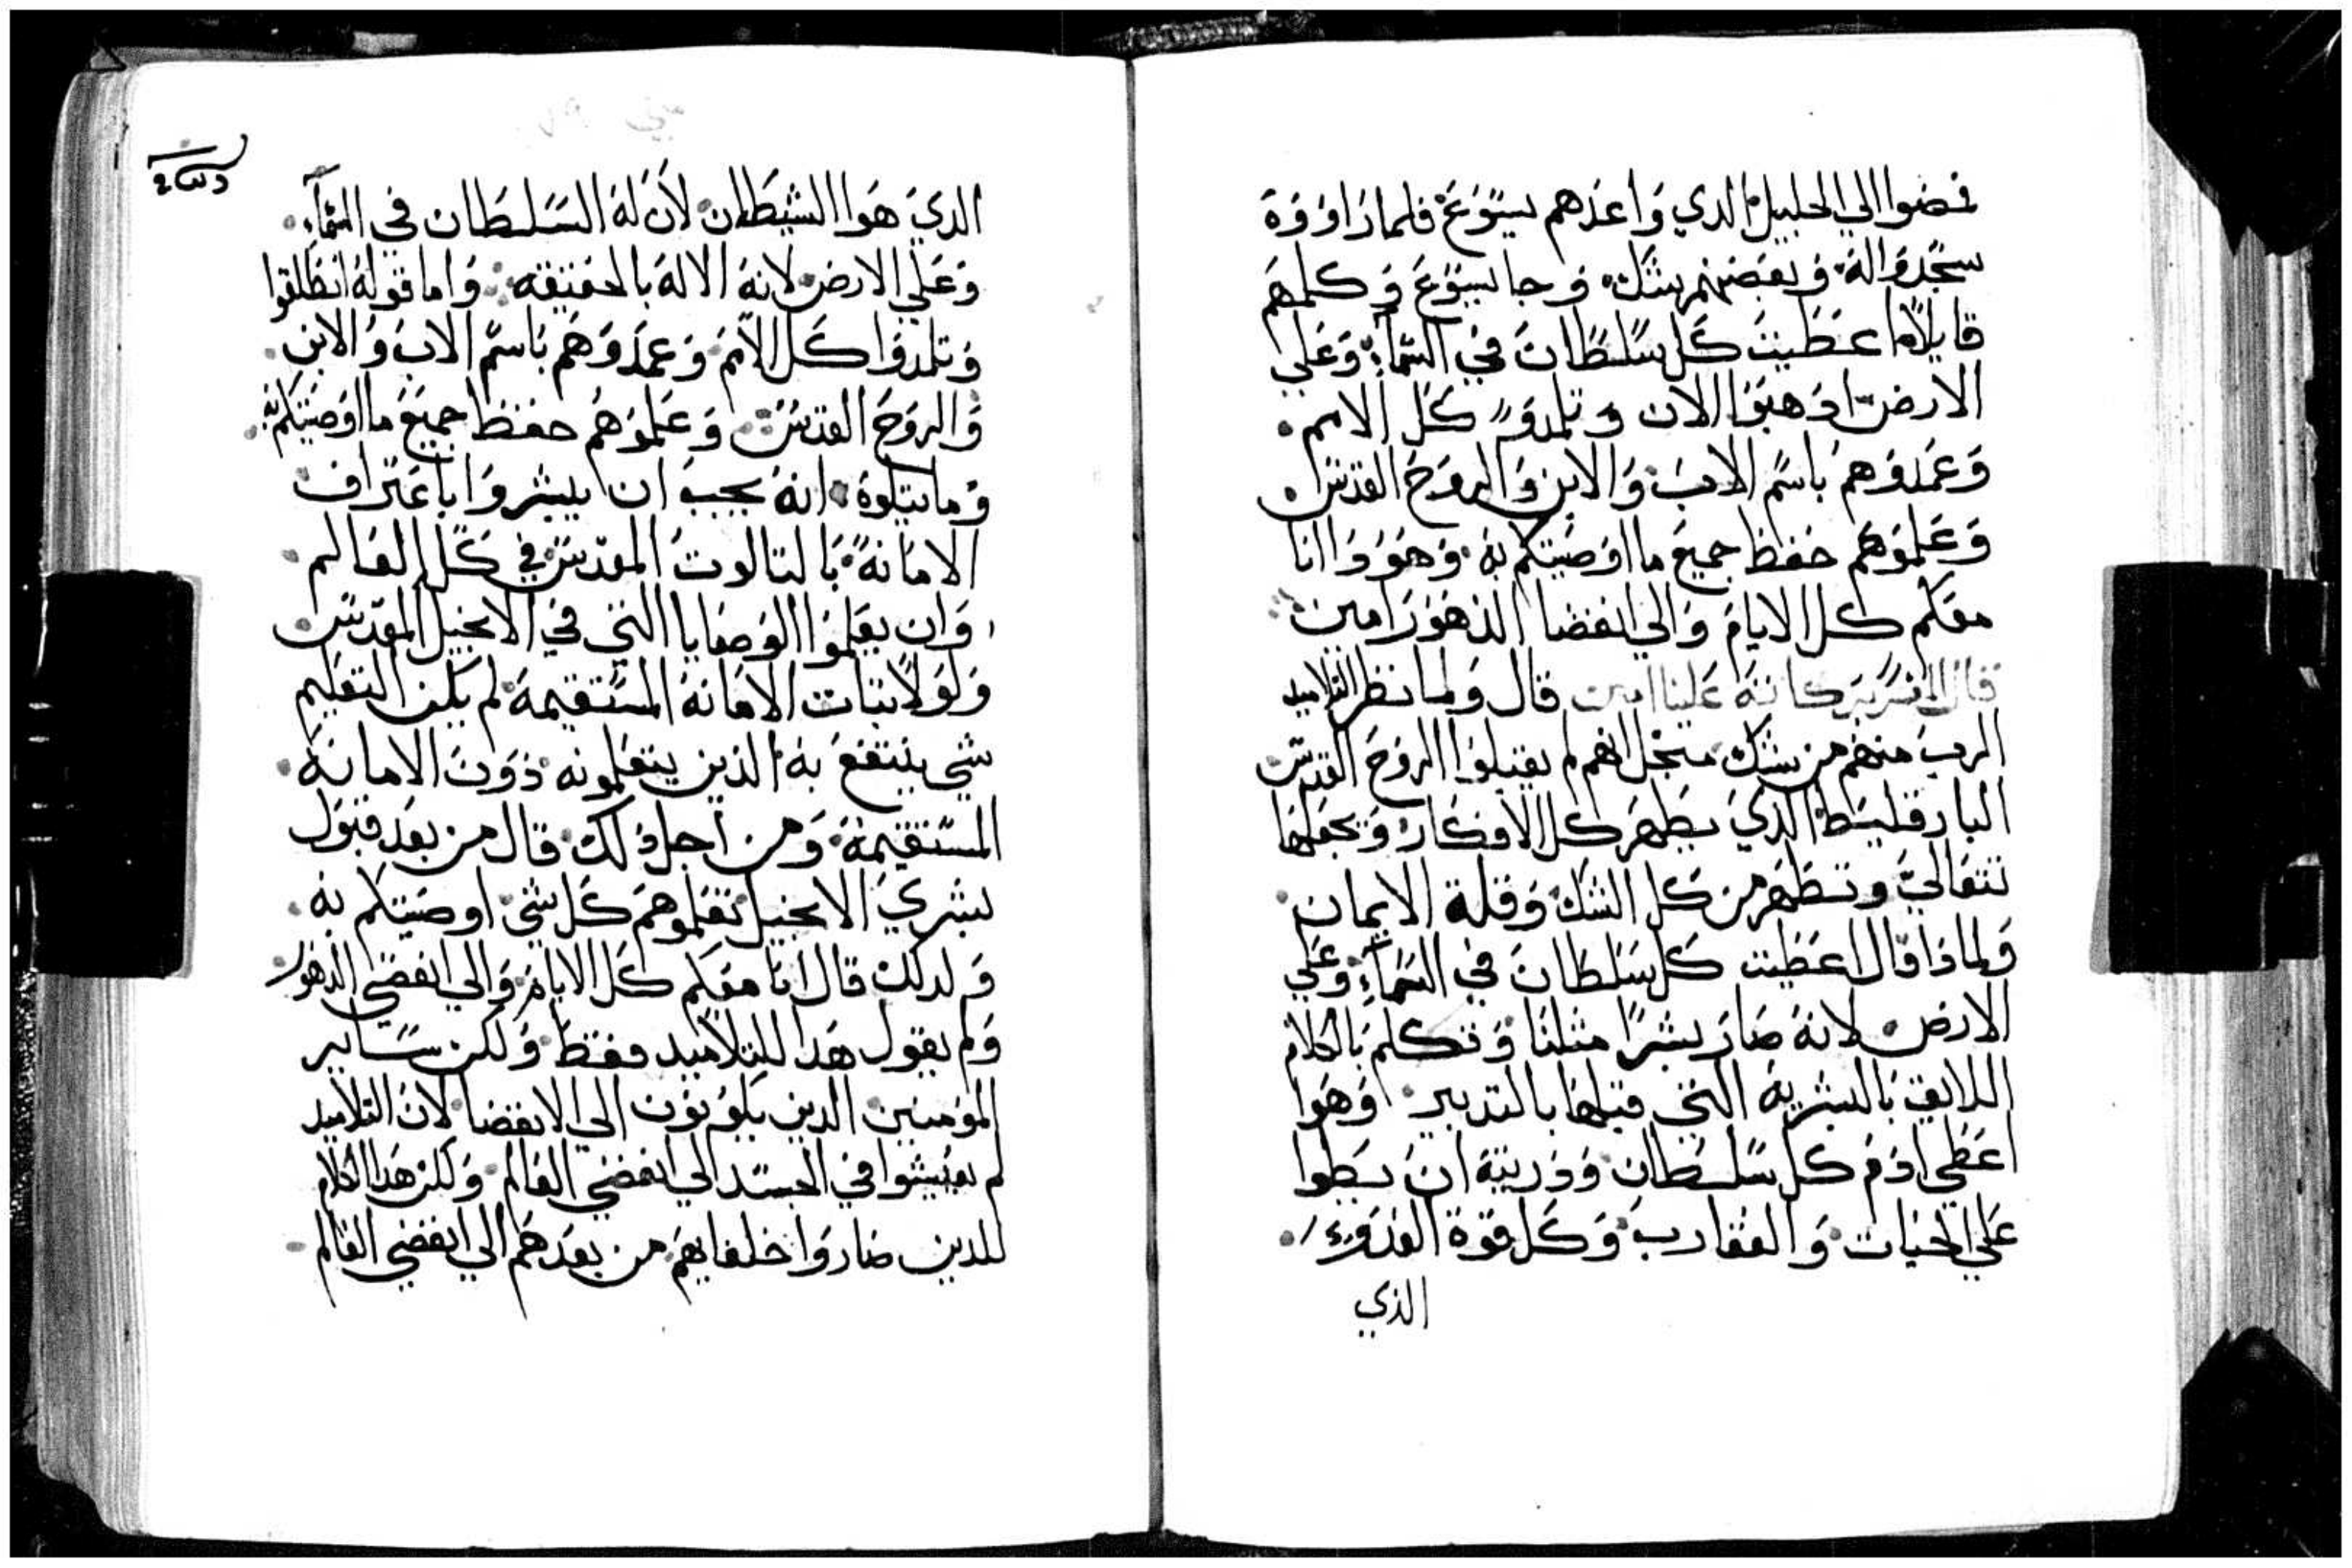 فمضوا الي الجليل الدي واعدهم يسوع فلما راووه
سجدوا له وبعضهم شك وجا يسوع وكلمهم
قايلاً اعطيت كل سلطان في السماء وعلي
الارض ادهبوا الان وتلمدو كل الامم
وعمدوهم باسم الاب والابن والروح القدس
وعلموهم حفظ جميع ما اوصيتكم به وهودا انا
معكم كل الايام والي انقضا الدهور امين
قال المفسر بركاته علينا امين قال ولما نظر التلاميد
الرب منهم من شك منجل انهم لم يقبلوا الروح القدس
البارقليط الدي يطهر كل الافكار وتجعلها
تتعالي وتطهر من كل الشك وقلة الايمان
ولماذا قال اعطيت كل سلطان في السماء وعلي
الارض لانه صار بشراً مثلنا وتكلم بالكلام
اللايق بالبشرية التي قبلها بالتدبير وهوا
اعطي ادم كل سلطان ودريته ان يطوا
علي الحيات والعقارب وكل قوة العدو
الذي
الدي هوا الشيطان لان له السلطان في السماء
وعلي الارض لانه الاله بالحقيقه واما قوله انطلقوا
وتلمدوا كل الامم وعمدوهم باسم الاب والابن
والروح القدس وعلموهم حفظ جميع ما اوصيتكم به
وما يتلوه انه يجب ان يبشروا باعتراف
الامانة بالتالوت المقدس في كل العالم
وان يعلموا الوصايا التي في الانجيل المقدس
ولولا ثبات الامانة المستقيمة لم يكن التعليم
شي ينتفع به الذين يتعلمونه دون الامانة
المستقيمة ومن اجل ذلك قال من بعد قبول
بشري الانجيل تعلموهم كل شي اوصيتكم به
ولدلك قال انا معكم كل الايام والي انقضي الدهور
ولم يقول هدا للتلاميد فقط ولكن ساير
المومنين الدين يكونون الي الانقضا لان التلاميد
لم يعيشوا في الجسد الي انقضي العالم ولكن هدا الكلام
للدين صاروا خلفايهم من بعدهم الي انقضي العالم